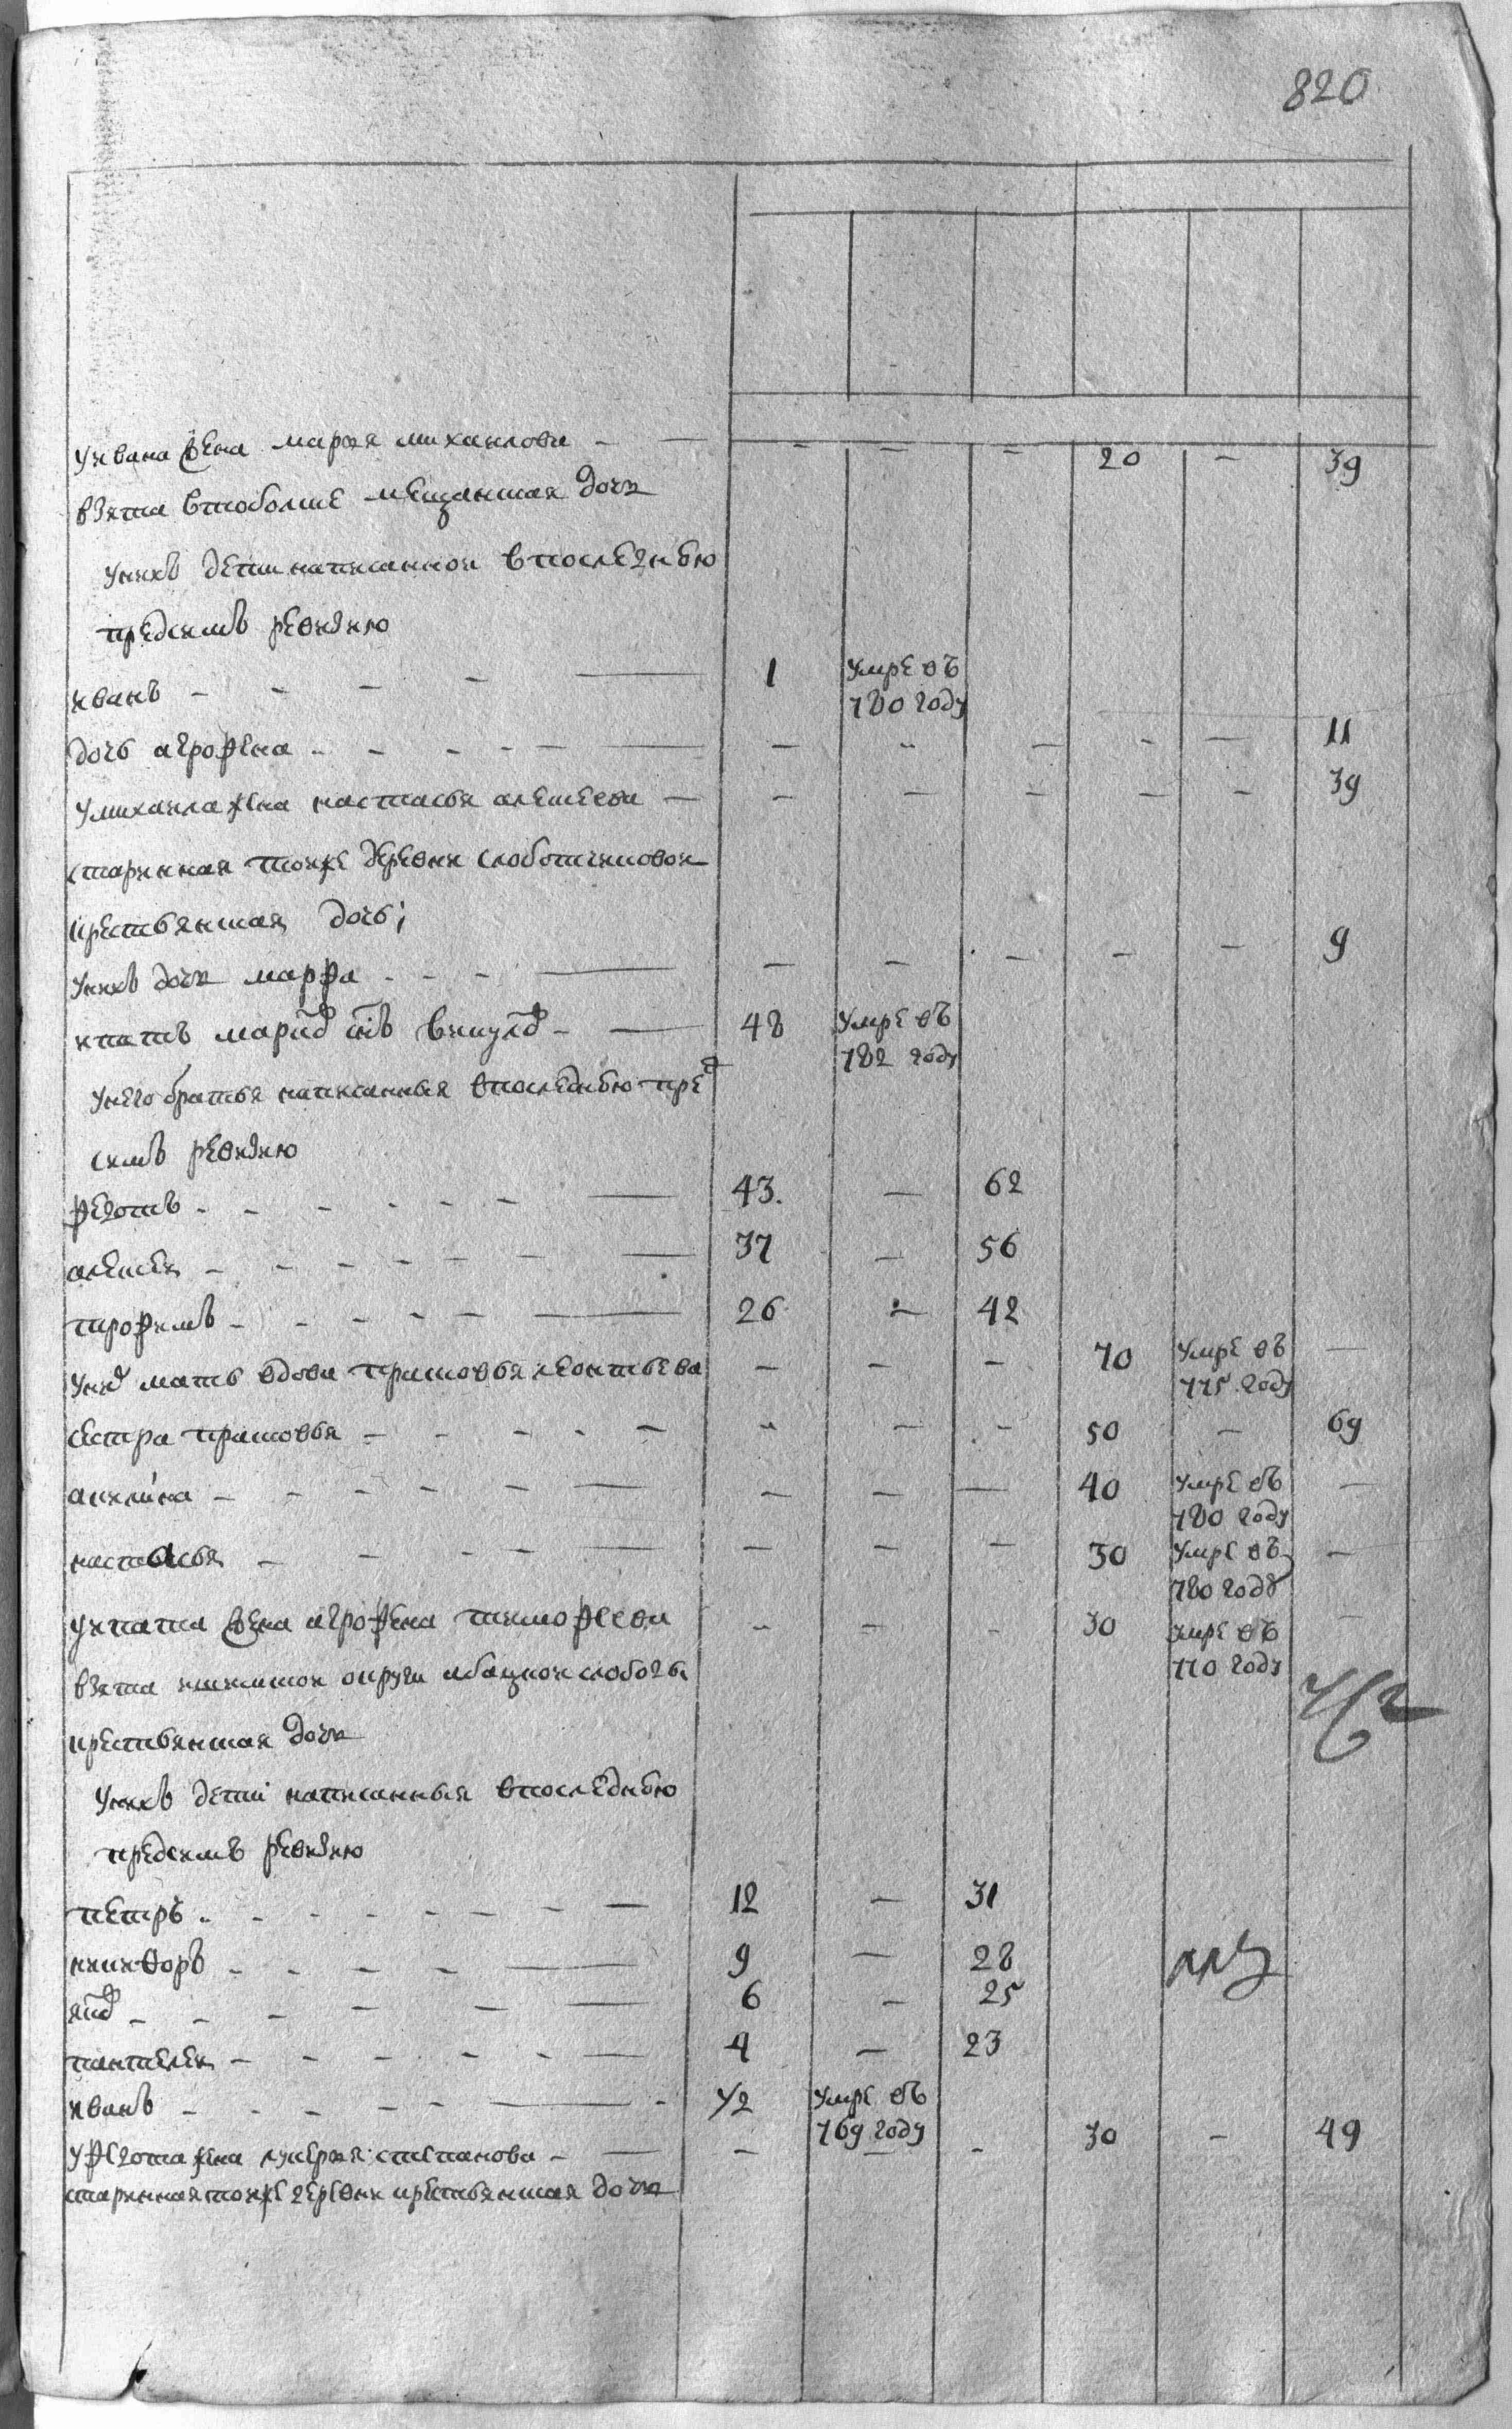 820
у ивана жена марья михаилова - - - - - 20 - 39
взята втобольске мещанская дочь
у них детии написанной впоследнюю
предсимъ ревизию
иванъ - - - - — 1 умре въ
780 году
дочь агрофена - - - - - — - - - - - 11
у михаила жена настасья алексеева — - - - - - 39
старинная тойже деревни
крестьянская дочь;
у них дочь марфа - - - — - - - - - 9
ипатъ - — 48 умре въ
782 году
у него братья написанныя впоследнюю пред
симъ ревизию
федотъ - - - - - - — 43. — 62
алексей - - - - - - - — 37 — 56
трофимъ - - - - - - — 26 - 42
у их мать вдова прасковья леонтьева - - - 70 умре въ —
775 году
сестра прасковья - - - - - - - - 50 - 69
акилина - - - - - — - - — 40 умре въ —
780 году
настасья - - - - - — - - - 30 умре въ —
780 году
у ипата жена агрофена тимофеева - - - 30 умре въ —
770 году
взята ишимской округи абацкой слободы
крестьянская дочь
у них детии написанныя впоследнюю
предсимъ ревизию
петръ - - - - - - - — 12 — 31
никифоръ - - - - - — 9 — 28
- - - - - — 6 - 25
пантелей - - - - - - — 4 — 23
иванъ - - - - - — - 1/2 умре въ
769 году
у федота жена лукерья степанова - — - - - 30 - 49
старинная тойже деревни крестьянская дочь